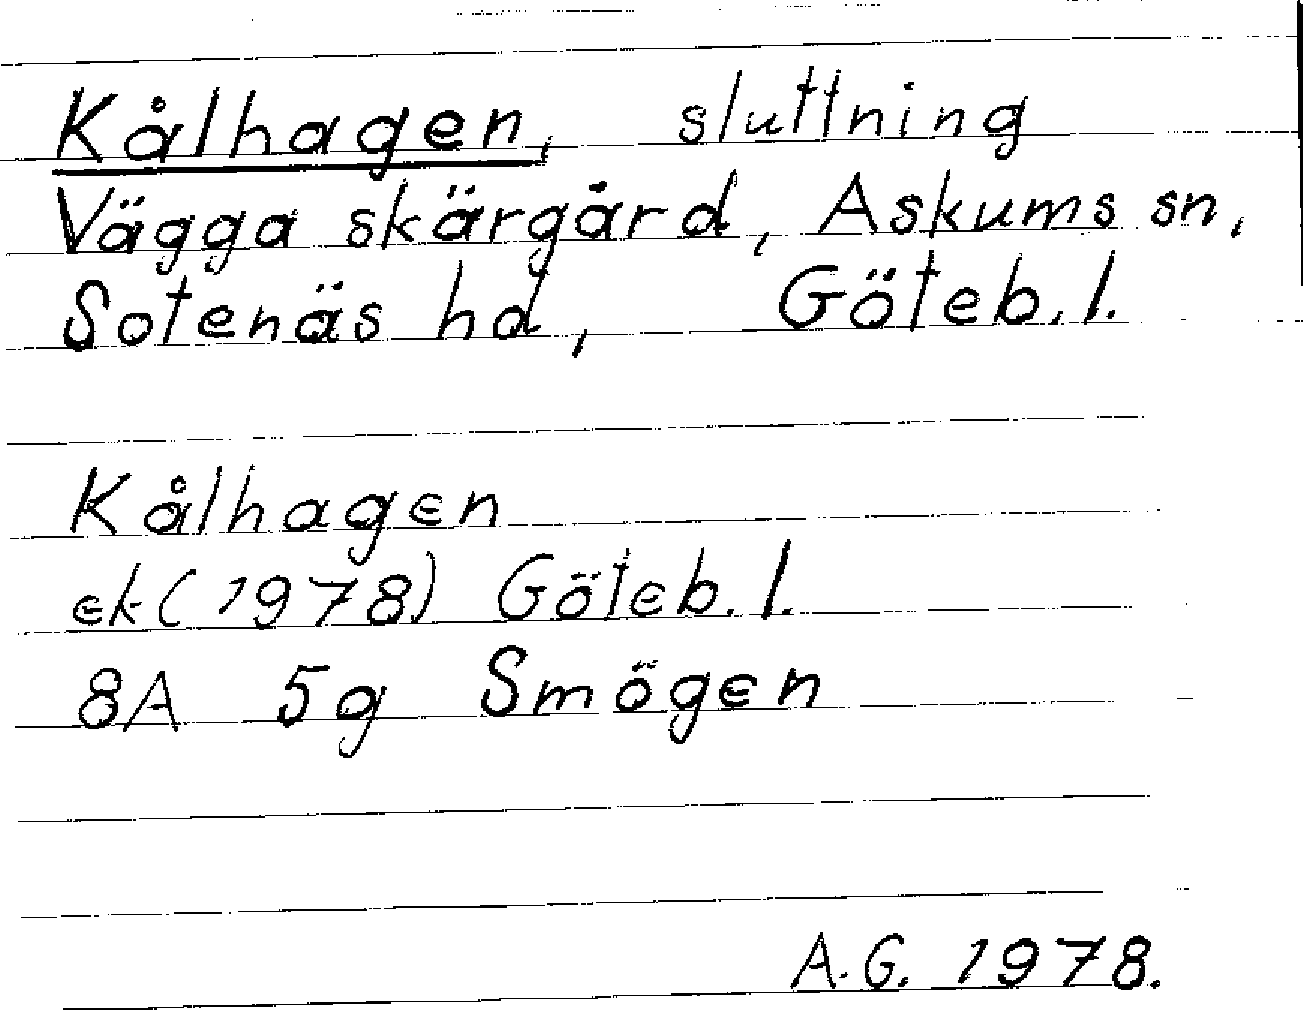 Kålhagen, sluttning
Vägga skärgård, Askums sn,
Sotenäs hd, Göteb. l.
Kålhagen
ek (1978) Göteb. l.
8A 5g Smögen
A.G. 1978.